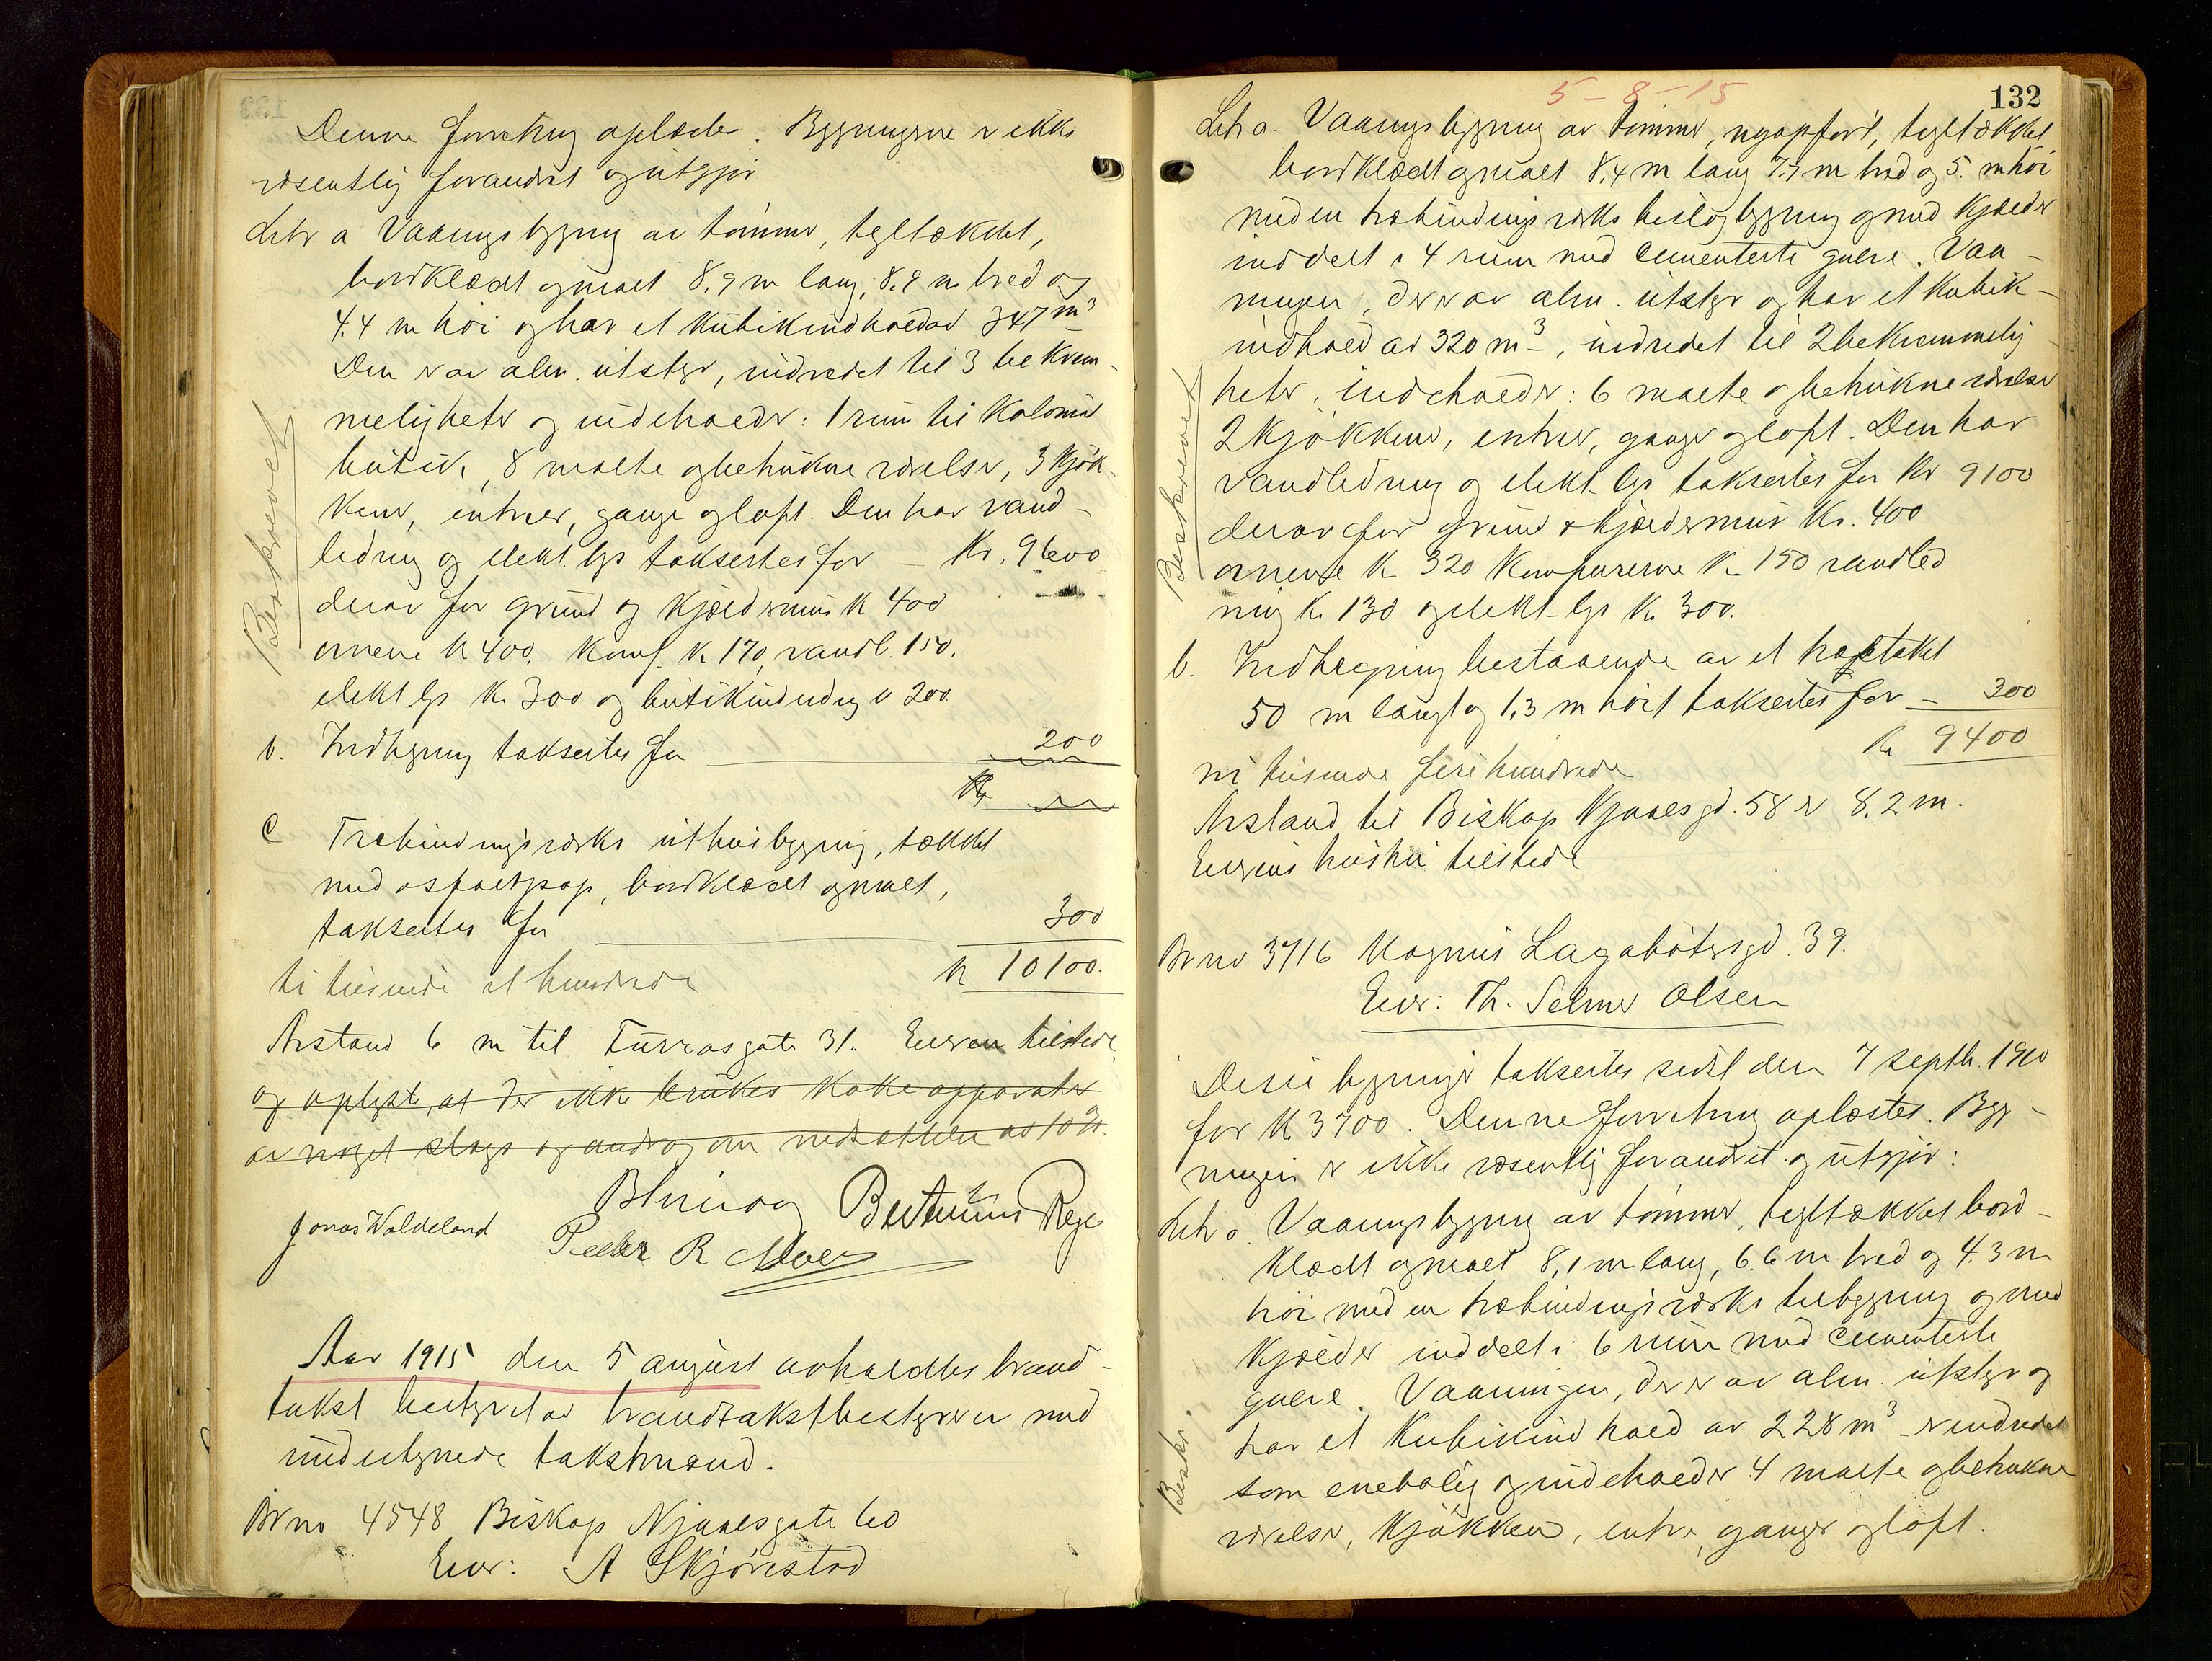 Denne forretning oplæstes. Bygningerne er ikke
væsentlig forandret og utgjør
Litr a Vaaningsbygning av tømmer, tegltækket,
bordklædt og malt 8,9 m lang, 8.9 m bred og
4.4 m høi og har et kubikindhold av 347 m³
Den er av alm. utstyr, indredet til 3 bekvem-
meligheter og indeholder: 1 rum til kolonial
butik, 8 malte og betrukne værelser, 3 kjøk-
kener, entreer, ganger og loft. Den har vand-
ledning og elekt. lys taksertes for – Kr. 9600
derav for grund og kjældermur K 400
ovnene K 400, Komf. K. 170, vandl. 150,
elekt lys Kr 300 og butikindredng K 200
b. Indhegning taksertes for 200
Kr
c Træbindingsverks uthusbygning, tækket
med asfaltpap, bordklædt og malt,
taksertes for 300
ti tusinde et hundrede K 10100.
Avstand 6 m til Furrasgate 31. Eieren tilstede
og oplyste, at der ikke brukes kokeapparater
av noget slags og androg om nedsættelse av 10%.
Jonas Waldeland Peder R Moe Bertinius Rege
Beskrevet
Aar 1915 den 5 august avholdtes brand-
takst bestyret av brandtakstbestyreren med
undertegnede takstmænd.
Br no 4548 Biskop Njaalsgate 60
Eier: A Skjørestad
5-8-15
132
Litr a. Vaaningsbygning av tømmer, nyopført, tegltækket
bordklædt og malt 8.4 m lang 7.7 m bred og 5. m høi
med en træbindingsverks tilbygning og med kjælder
inddelt i 4 rum med cementerte gulve. Vaa-
ningen, der er av alm. utstyr og har et kubik-
indhold av 320 m³, indredet til 2 bekvemmelig-
heter, indeholder: 6 malte og betrukne værelser
2 kjøkkener, entreer, ganger og loft. Den har
vandledning og elekt. lys taksertes for Kr 9100
derav for grund & kjældermur Kr. 400
ovnene K 320 Komfurerne K 150 vandled
ning Kr. 130 og elekt. lys K. 300.
b. Indhegning bestaaende av et træstaket
50 m langt og 1,3 m høit taksertes for – 300
Kr 9400
ni tusinde firehundrede
Avstand til Biskop Njaalsgd. 58 er 8.2 m.
Eierens hustru tilstede
Beskrevet
Br no 3716 Magnus Lagabøtersgd. 39.
Eier: Th. Selmer Olsen
Disse bygninger taksertes sidst den 7 septb. 1910
for K 3700. Denne forretning oplæstes. Byg-
ningen er ikke væsentlig forandret og utgjør:
Litr a. Vaaningsbygning av tømmer, tegltækket bord-
klædt og malt 8,1 m lang, 6.6 m bred og 4.3 m
høi med en træbindingsverks tilbygning og med
kjælder inddelt i 6 rum med cementerte
gulve. Vaaningen, der er av alm. utstyr og
har et kubikindhold av 228 m³ er indredet
som enebolig og indeholder 4 malte og betrukne
værelser, kjøkken, entre, ganger og loft.
Beskr.